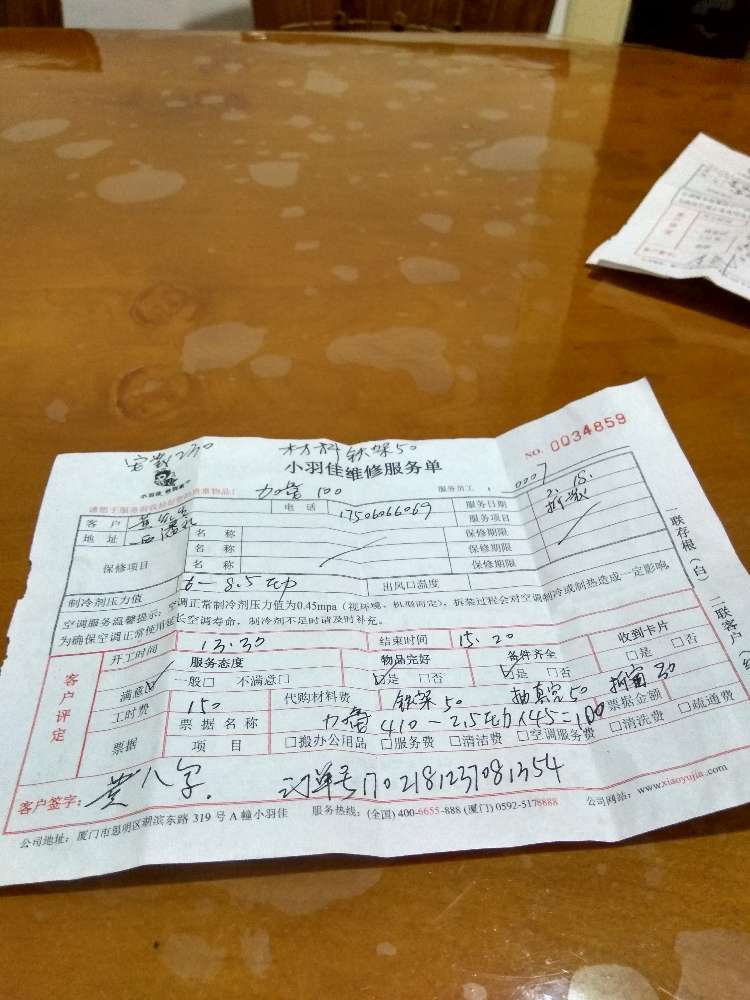 安装230
材料 铁架50
NO. 0034859
小羽佳
小羽佳维修服务单
服务员工: 0007
加管 100
客户
电话 17506066069
服务日期 2.18.
地址
服务项目 拆装
保修项目
名称
保修期限
名称
保修期限
名称
保修期限
制冷剂压力值
出风口温度
空调服务温馨提示: 空调正常制冷剂压力值为0.45mpa(视环境、机型而定), 拆装过程会对空调制冷或制热造成一定影响
为确保空调正常使用延长空调寿命, 制冷剂不足时请及时补充。
一联存根(白) 二联客户(红)
客户评定
开工时间 13.30
结束时间 15.20
服务态度
物品完好
备件齐全
收到卡片
满意☑ 一般□ 不满意□
☑是 □否
☑是 □否
□是 □否
工时费 150
代购材料费 铁架50 抽真空50
票据
票据名称
票据金额
项目
□搬办公用品 □服务费 □清洁费 □空调服务费 □清洗费 □疏通费
客户签字:
订单号1702181237081354
公司地址: 厦门市思明区湖滨东路 319 号 A 幢小羽佳
服务热线: (全国) 400-6655-888 (厦门) 0592-5178888
公司网站: www.xiaoyujia.com